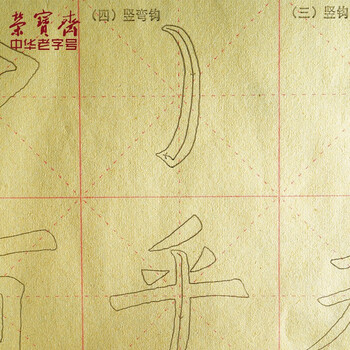 荣宝斋
中华老字号
（四）竖弯钩
（三）竖钩
乎